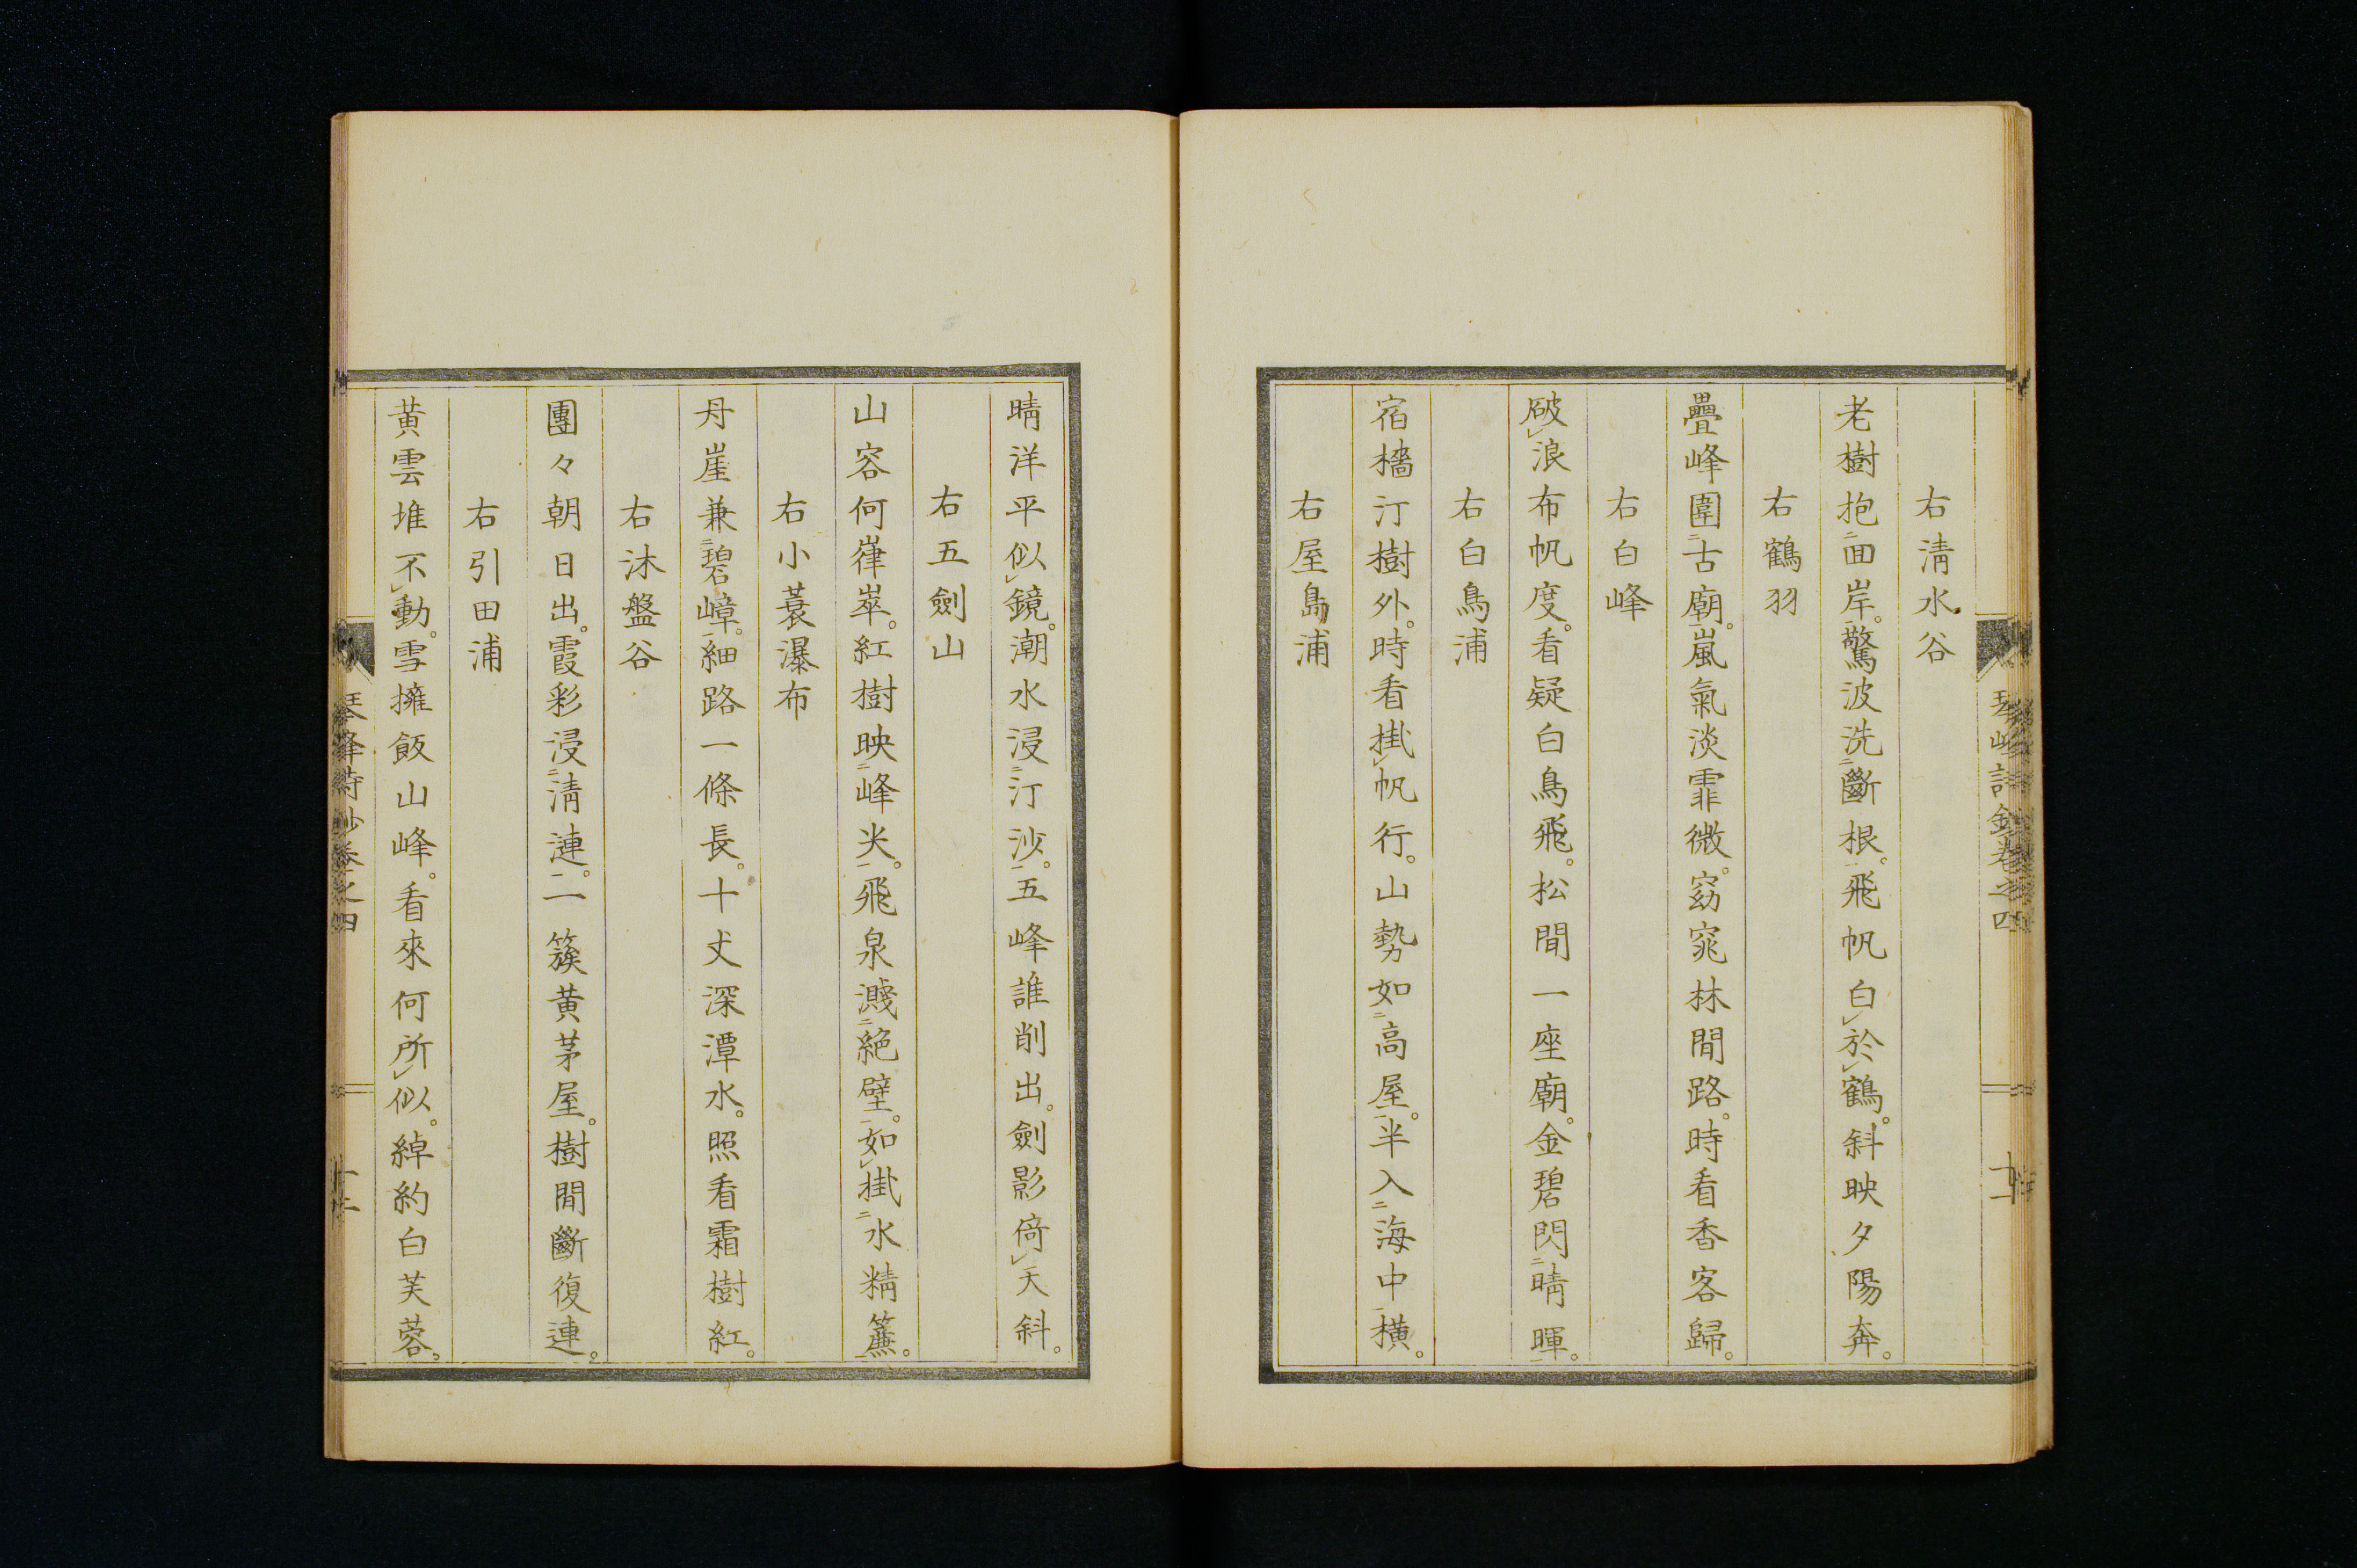 右清水谷
老樹抱二回岸一。驚波洗二斷根一。飛帆白レ於レ鶴。斜映夕陽奔。
右鶴羽
疊峰圍二古廟一。嵐氣淡霏微。窈窕林間路。時看香客歸。
右白峰
破レ浪布帆度。看疑白鳥飛。松間一座廟。金碧閃二晴暉一。
右白鳥浦
宿檣汀樹外。時看掛レ帆行。山勢如二高屋一。半入二海中一橫。
右屋島浦
晴洋平似レ鏡。潮水浸二汀沙一。五峰誰削出。劍影倚レ天斜。
右五劍山
山容何嵂崒。紅樹映二峰尖一。飛泉濺二絶壁一。如レ掛二水精簾一。
右小蓑瀑布
丹崖兼二碧嶂一。細路一條長。十丈深潭水。照看霜樹紅。
右沐盤谷
團々朝日出。霞彩浸二清漣一。一簇黃茅屋。樹間斷復連。
右引田浦
黃雲堆不レ動。雪擁飯山峰。看來何所レ似。綽約白芙蓉。
琴峰詩鈔卷之四